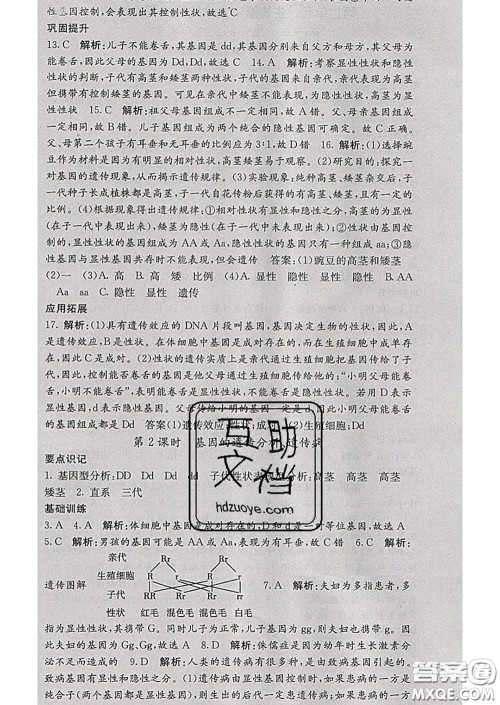 性基因控制,会表现出其控制性状,故选 C
巩固提升
13. C 解析:儿子不能卷舌,其基因是 dd,其基因分别来自父方和母方,其父母为
能卷舌,因此父母的基因为 Dd、Dd,故选 C 14. A 解析:考察显性性状和隐性
性状的判断,子代有高茎和矮茎两种性状,子代的基因来自亲代,亲代表现为高茎
但携带有控制矮茎的基因。可见在亲代中矮茎不能表现,为隐性性状,高茎为显
性性状 15. C 解析:祖父母基因组成不一定相同,故 A 错。父、母亲基因组成
一定相同,故 B 错。儿子基因组成为两个纯合的隐性基因可确定。故 C 正确。
父、母第二个孩子有耳垂和无耳垂的比例应为 3∶1,故 D 错 16. 解析:(1)选择豌
豆作为材料是因为有明显的相对性状,高茎矮茎易于观察。(2)研究目的:探究一
对基因的遗传现象,从而得出遗传规律。(3)实验现象;纯种高茎、矮茎杂交后,子
一代种子长成植株都是高茎,子一代自花传粉后获得的有高茎、矮茎,高茎占多大
比例。(4)根据现象得出遗传规律:①相对性状有显性和隐性之分,高茎的为显性
(在子一代中表现出来),矮茎为隐性(在子一代中未表现出来);②性状由基因控
制的,显性性状的基因组成为 AA 或 Aa,隐性性状的基因只有一种组成 aa;③隐
性基因与显性基因共存时不能表现,但会遗传 答案:(1)豌豆的高茎和矮茎
(2)一 (3)A. 高 B. 高 矮 比例 (4)A. 显性 隐性 B. 基因 AA
Aa aa C. 隐性 显性 遗传
应用拓展
17. 解析:(1)具有遗传效应的 DNA 片段叫基因,基因决定生物的性状,因此,A
是显性性状,B 是遗传效应。在体细胞中基因是成对存在的,而在生殖细胞中成单存
在,因此 C 是成对。(2)生物体的性状传递实质上是亲代通过生殖细胞把基因传给了子
代,因此控制能卷舌的基因是他父母通过生殖细胞把基因传给他的;“小明父母能卷
舌,小明不能卷舌”,表明能卷舌是显性性状,不能卷舌是隐性性状。若用 D 表示
显性基因,d 表示隐性基因。父母传给小明的基因一定是 d,因此小明父母的基
因组成都是 Dd 答案:(1)遗传效应;性状;成对 (2)生殖细胞;Dd
第 2 课时 基因的遗传分析 遗传病
要点识记
1. 基因型分析;DD Dd Dd dd 子代性状表现型分析; 高茎 高茎 高茎
矮茎 2. 直系 三代
基础训练
3. A 4. A 解析:体细胞中基因是成对存在的,D 和 d 是一对等位基因,故选 A
5. C 解析:男孩的基因可能是 AA 或 Aa,表现有耳垂,因此选 C 6. C 解析:
亲代 Rr Rr
生殖细胞
遗传图解 R r R r 7. A 解析:夫妇为多指患者,多
子代 RR Rr Rr rr
性状 红毛 混色毛 混色毛 白毛
指为显性性状,其携带 G。同时儿子为正常,儿子基因为 gg,故夫妇也携带 g。因
此夫妇的基因为 Gg、Gg,故选 A 8. D 解析:侏儒症是因为幼年时生长激素分
泌不足而造成的 9. D 解析:人类的遗传病有很多种,是由致病基因引起的。
致病基因引起的遗传病,能一代一代往下传。隐性遗传病的控制时,如果患病的一方是
纯合子(两个基因都是显性基因),则生出的后代一定患遗传病;如果患病的一方
互助
文档
hdzuoye.com
答案圈
MXQE.COM